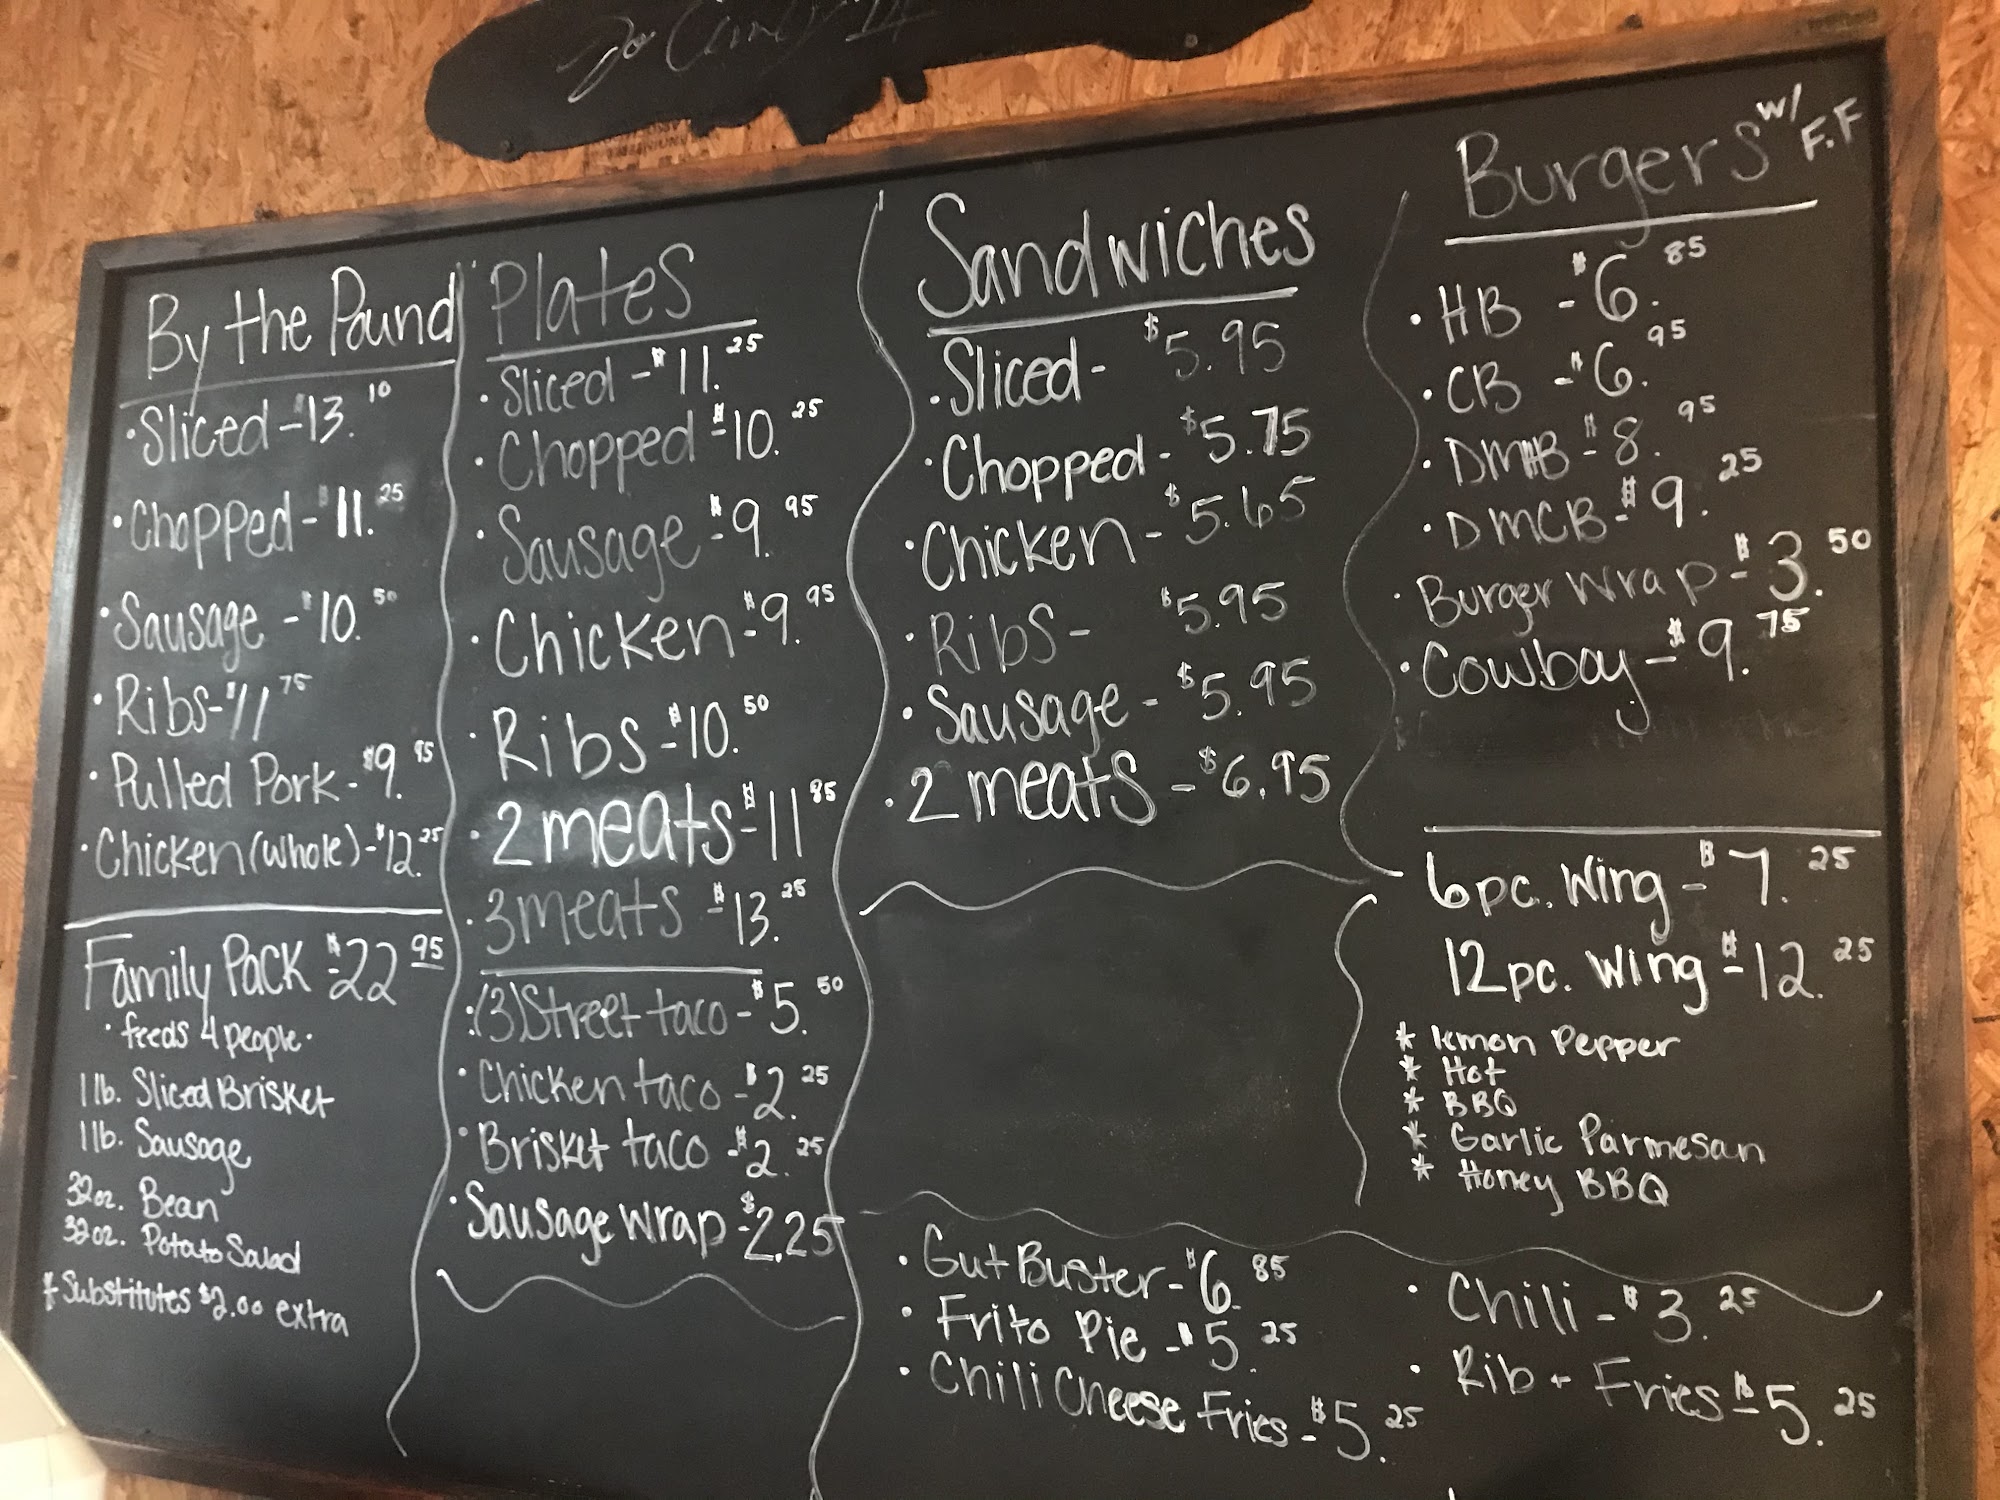 By the Pound
• Sliced - $13.10
• Chopped - $11.25
• Sausage - $10.50
• Ribs - $11.75
• Pulled Pork - $9.95
• Chicken (whole) - $12.25
Family Pack $22.95
• feeds 4 people •
1 lb. Sliced Brisket
1 lb. Sausage
32 oz. Bean
32 oz. Potato Salad
* Substitutes $2.00 extra
Plates
• Sliced - $11.25
• Chopped - $10.25
• Sausage - $9.95
• Chicken - $9.95
• Ribs - $10.50
• 2 meats - $11.85
• 3 meats - $13.25
• (3) Street taco - $5.50
• Chicken taco - $2.25
• Brisket taco - $2.25
• Sausage wrap - $2.25
Sandwiches
• Sliced - $5.95
• Chopped - $5.75
• Chicken - $5.65
• Ribs - $5.95
• Sausage - $5.95
• 2 meats - $6.95
Burgers w/ F.F
• HB - $6.85
• CB - $6.95
• DMHB - $8.95
• DMCB - $9.25
• Burger Wrap - $3.50
• Cowboy - $9.75
6 pc. Wing - $7.25
12 pc. Wing - $12.25
* lemon Pepper
* Hot
* BBQ
* Garlic Parmesan
* Honey BBQ
• Gut Buster - $6.85
• Frito Pie - $5.25
• Chili Cheese Fries - $5.25
• Chili - $3.25
• Rib + Fries - $5.25